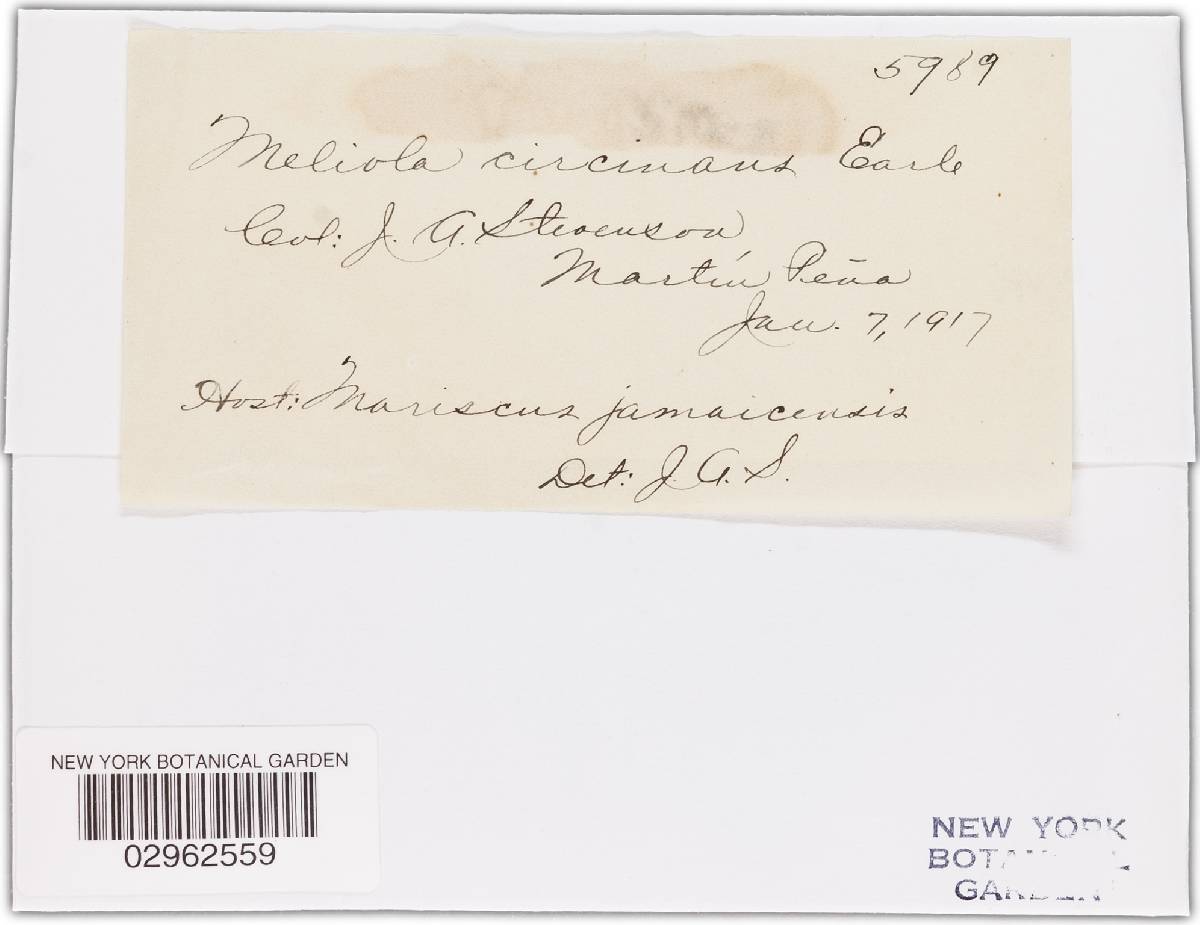 5989
Meliola circinans Earle
Col: J. A. Stevenson
Martín Peña
Jan. 7, 1917
Host: Mariscus jamaicensis
Det: J. A. S.
NEW YORK BOTANICAL GARDEN
02962559
NEW YORK
BOTANICAL
GARDEN